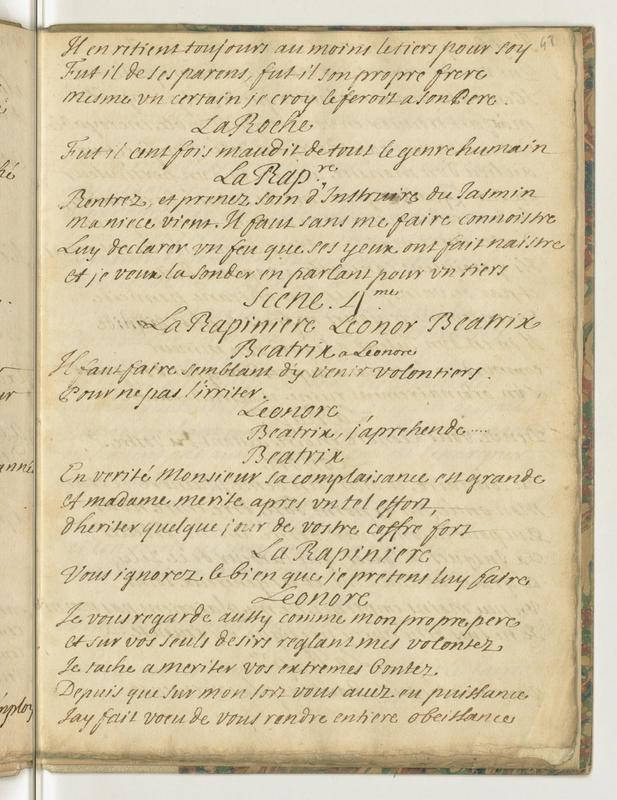 Il en retient toujours au moins le tiers pour soy
Fut il de ses parens, fut il son propre frere
mesme vn certain je croy le feroit a son Pere
La Roche
Fut il cent fois maudit de tout le genre humain
La Rap.re
Rentrez, et prenez soin d'Instruire du Jasmin
Ma niece vient. Il faut sans me faire connoistre
Luy declarer vn feu que ses yeux ont fait naistre
et je veux la sonder en parlant pour vn tiers
Scene. 4me
La Rapiniere Leonor Beatrix
Beatrix a Leonore
Il faut faire semblant dy venir volontiers.
Pour ne pas l'irriter.
Leonore
Beatrix, j'aprehende....
Beatrix
En verité Monsieur sa complaisance est grande
et madame merite apres vn tel effort,
d'heriter quelque jour de vostre coffre fort
La Rapiniere
Vous ignorez le bien que je pretens luy faire
Leonore
Je vous regarde aussy comme mon propre pere
et sur vos seuls desirs reglant mes volontez
Je tache a meriter vos extremes bontez
Depuis que sur mon sort vous auez eu puissance
Jay fait voeu de vous rendre entiere obeissance